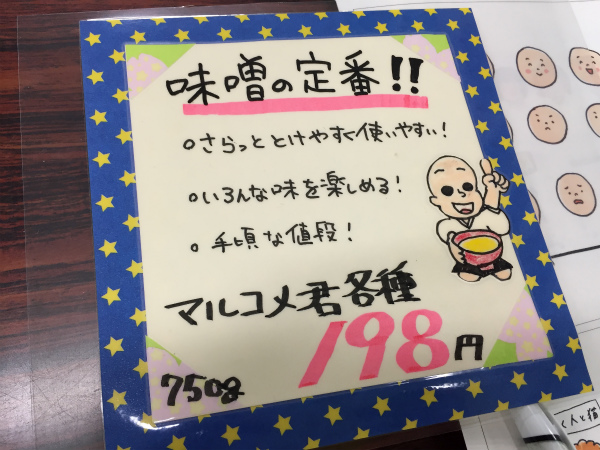 味噌の定番!!
○さらっととけやすく使いやすい!
○いろんな味を楽しめる!
○手頃な値段!
マルコメ君各種
198円
750g
く人と猫